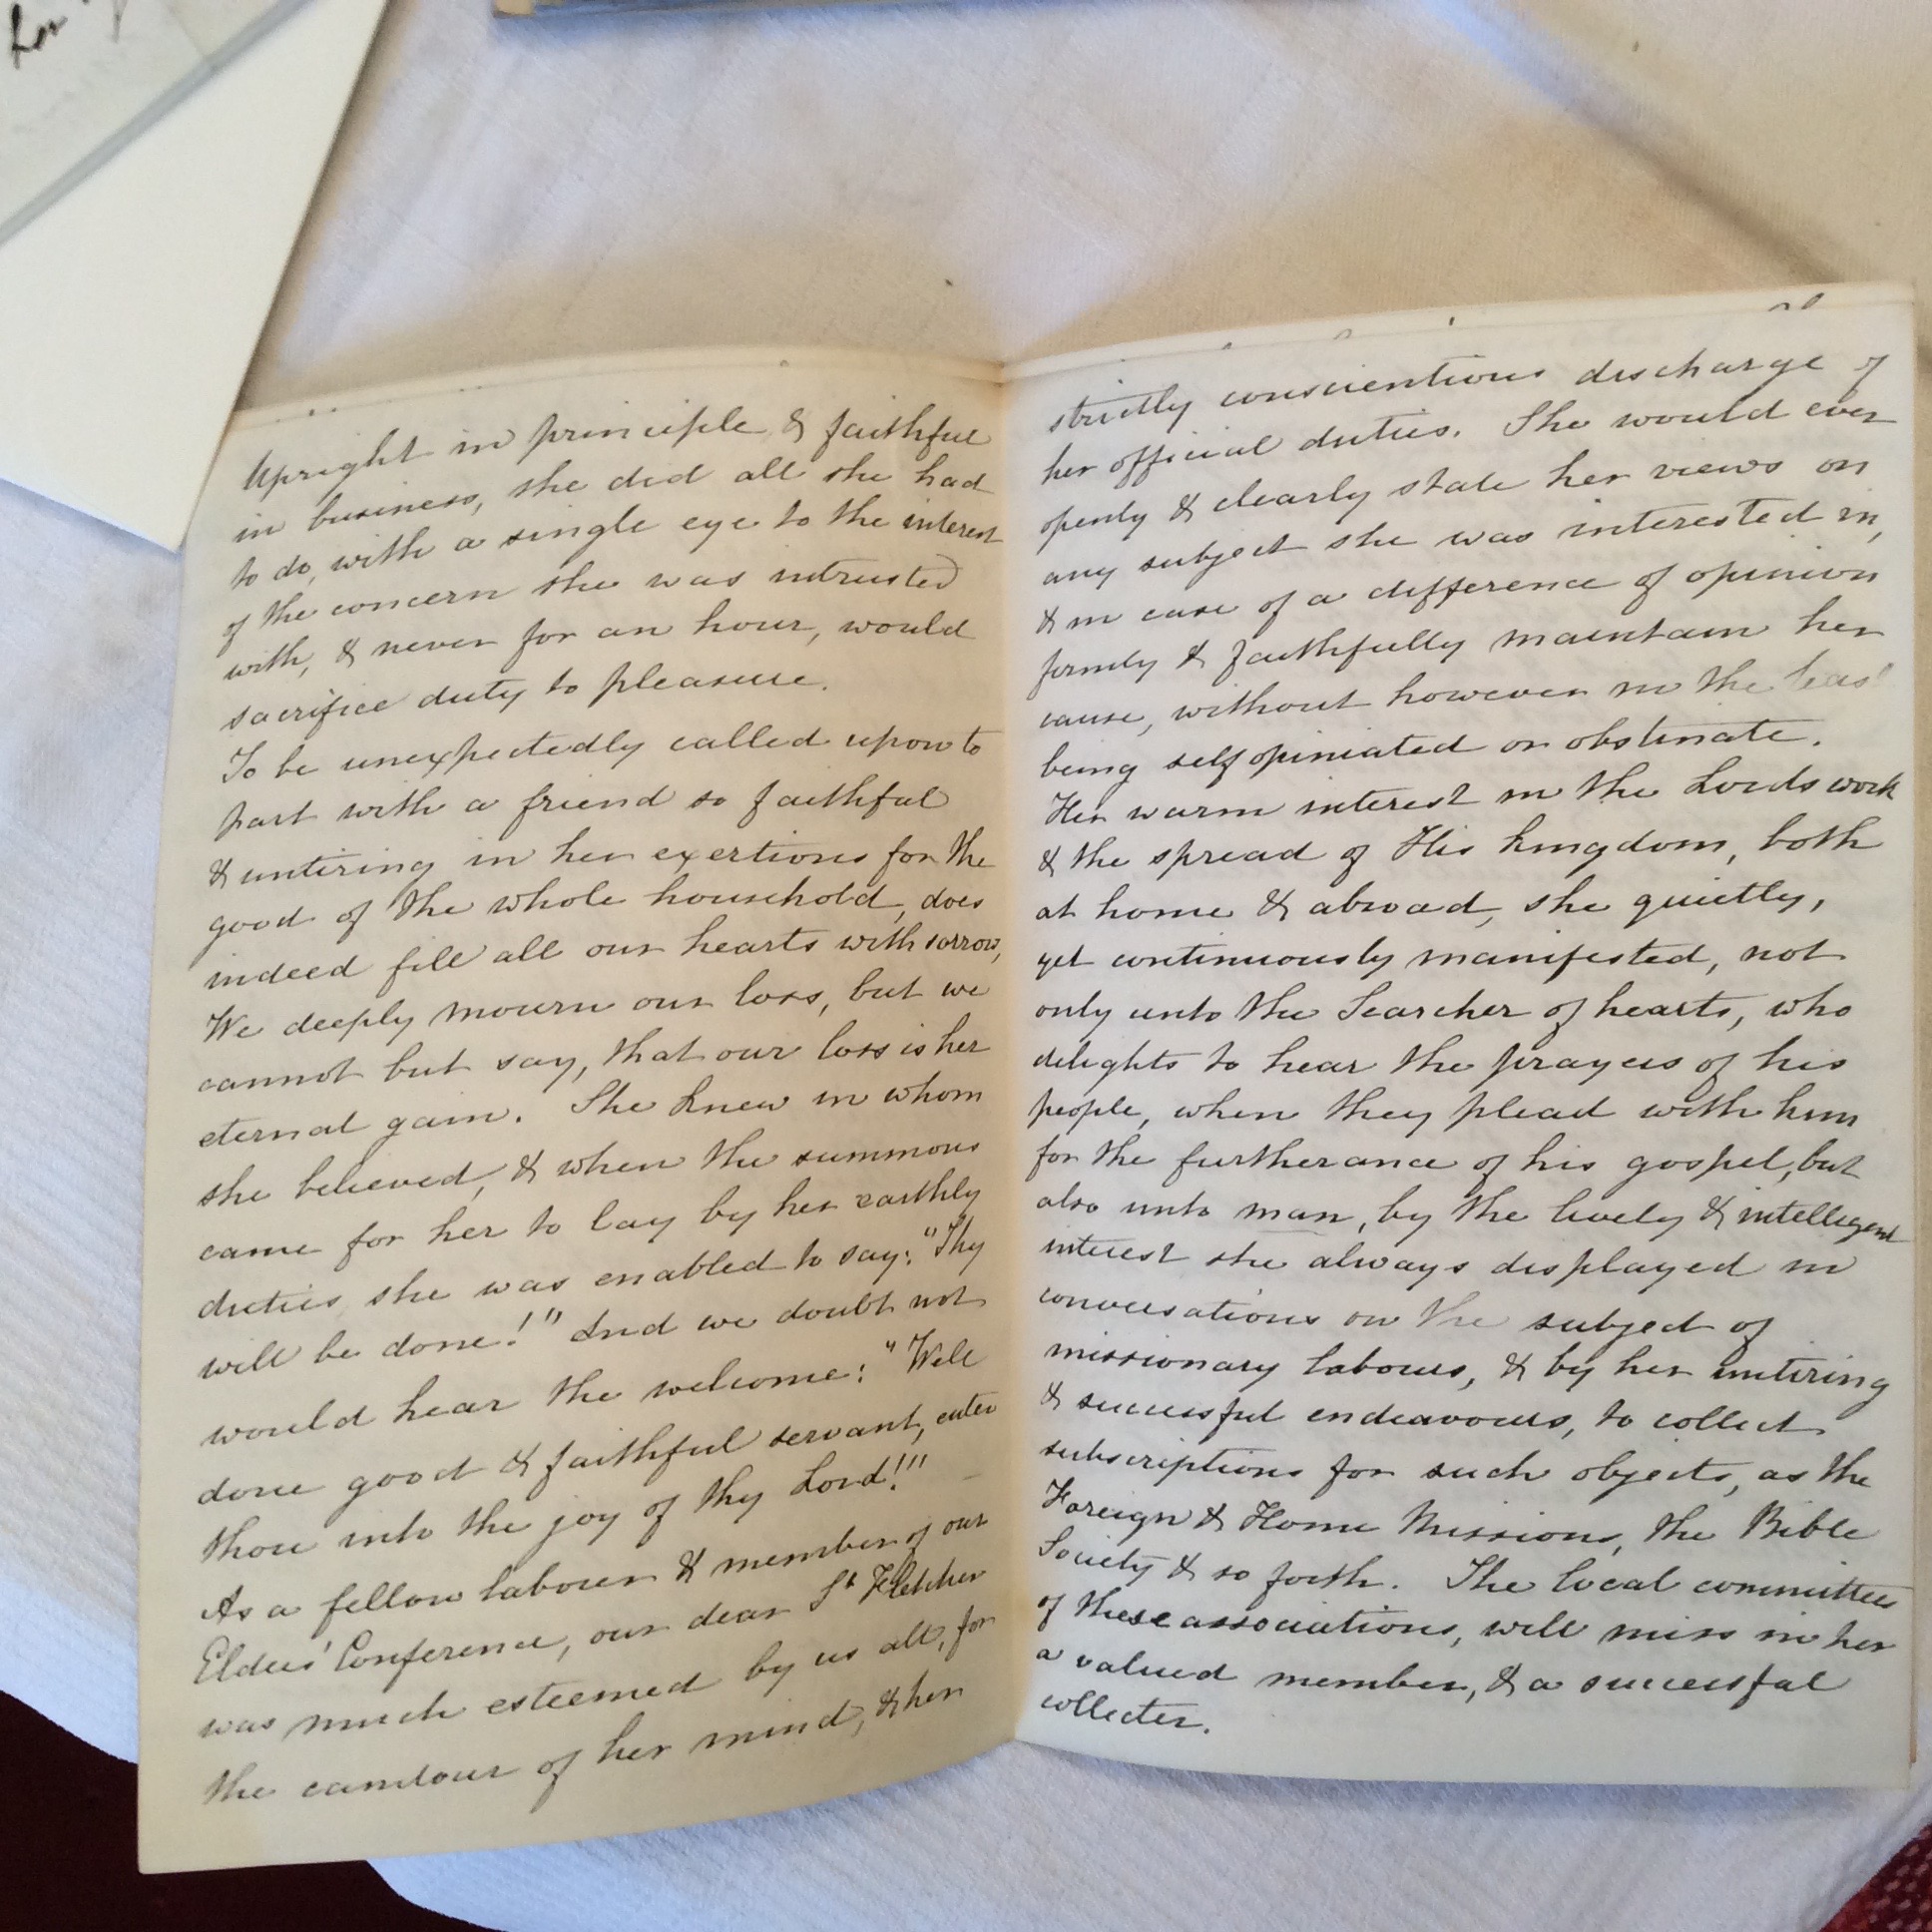 Upright in principle & faithful
in business, she did all she had
to do, with a single eye to the interest
of the concern she was intrusted
with, & never for an hour, would
sacrifice duty to pleasure.
To be unexpectedly called upon to
part with a friend so faithful
& untiring in her exertions for the
good of the whole household, does
indeed fill all our hearts with sorrow,
We deeply mourn our loss, but we
cannot but say, that our loss is her
eternal gain. She knew in whom
she believed, & when the summons
came for her to lay by her earthly
duties she was enabled to say: "Thy
will be done!" And we doubt not
would hear the welcome: "Well
done good & faithful servant, enter
thou into the joy of thy Lord!"
As a fellow labourer & member of our
Elders' Conference, our dear Sr Fletcher
was much esteemed by us all, for
the candour of her mind, & her
strictly conscientious discharge of
her official duties. She would ever
openly & clearly state her views on
any subject she was interested in,
& in case of a difference of opinion
firmly & faithfully maintain her
cause, without however in the least
being self opiniated or obstinate.
Her warm interest in the Lords work
& the spread of His kingdom, both
at home & abroad, she quietly,
yet continuously manifested, not
only unto the Searcher of hearts, who
delights to hear the prayers of his
people, when they plead with him
for the furtherance of his gospel, but
also unto man, by the lively & intelligent
interest she always displayed in
conversations on the subject of
missionary labours, & by her untiring
& successful endeavours, to collect
subscriptions for such objects, as the
Foreign & Home Missions, the Bible
Society & so forth. The local committees
of these associations, will miss in her
a valued member, & a successful
collecter.